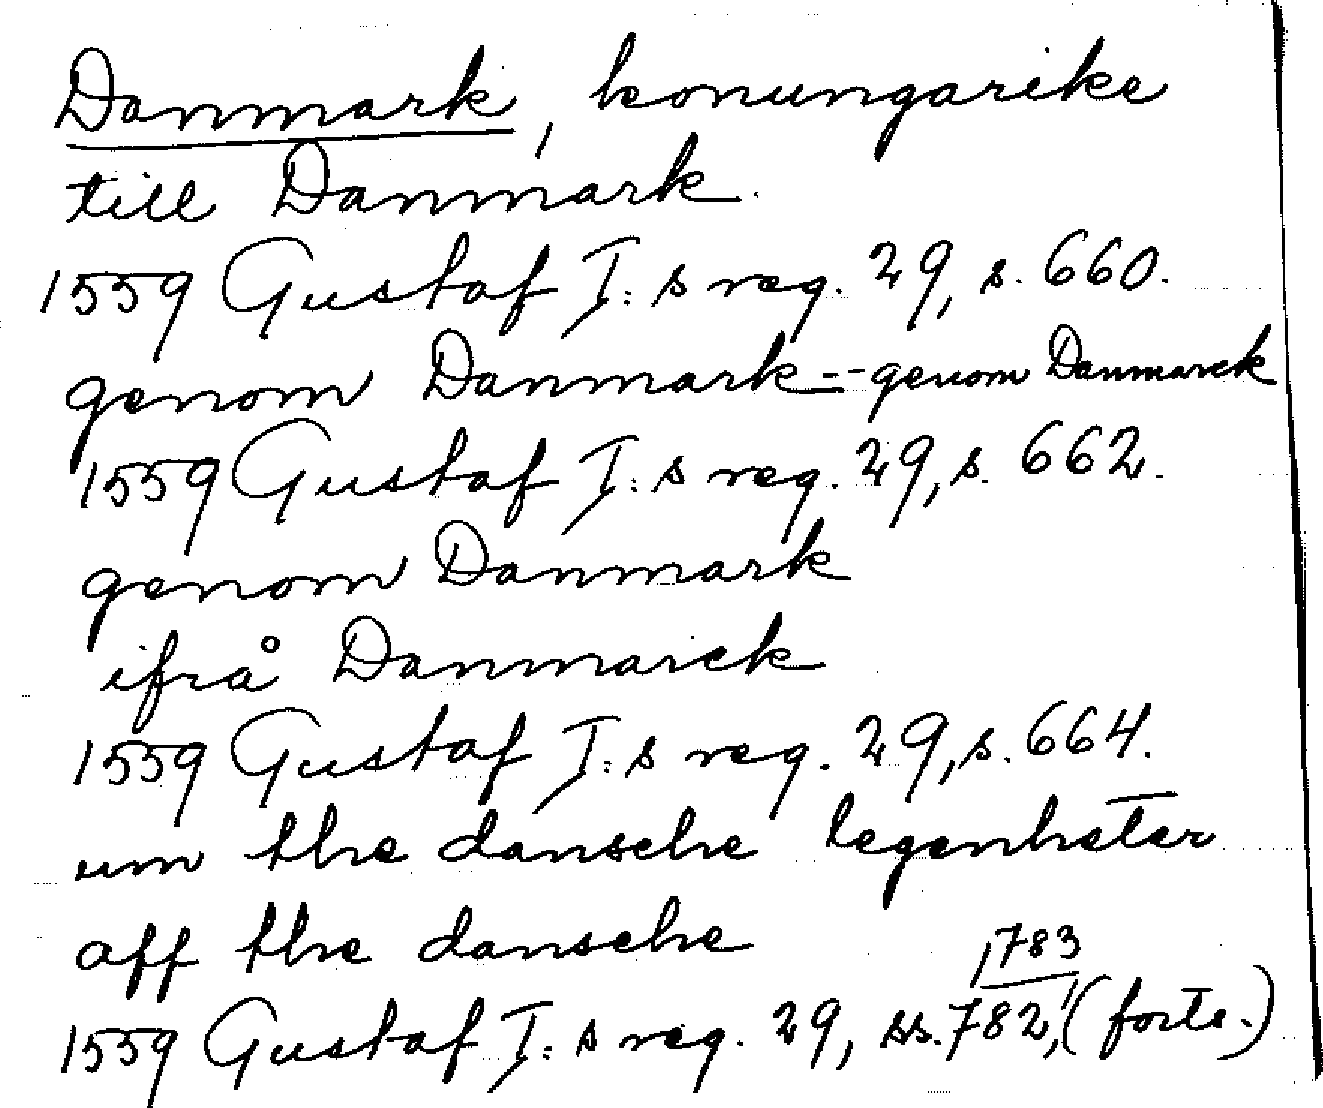 Danmark, konungarike
till Danmark.
1559 Gustaf I:s reg. 29, s. 660.
genom Danmark=-genom Danmarck
1559 Gustaf I:s reg. 29, s. 662.
genom Danmark
ifrå Danmarck
1559 Gustaf I:s reg. 29, s. 664.
um the dansche legenheter
aff the dansche
1559 Gustaf I:s reg. 29, ss. 782, 783, (forts.)